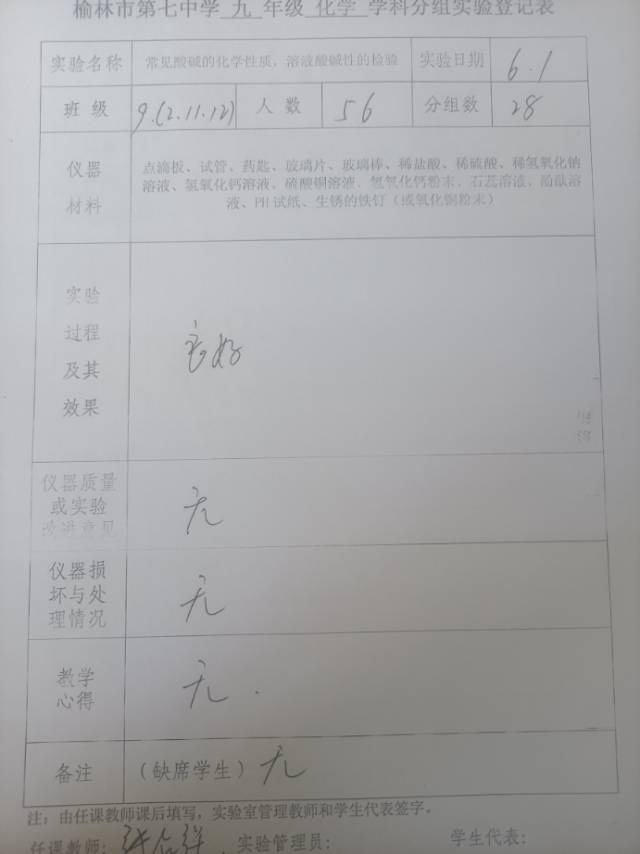 榆林市第七中学 九 年级 化学 学科分组实验登记表
实验名称 常见酸碱的化学性质,溶液酸碱性的检验 实验日期 6.1
班 级 9.(2.11.12) 人 数 56 分组数 28
仪器
材料
点滴板、试管、药匙、玻璃片、玻璃棒、稀盐酸、稀硫酸、稀氢氧化钠
溶液、氢氧化钙溶液、硫酸铜溶液、氢氧化钙粉末、石蕊溶液、酚酞溶
液、PH试纸、生锈的铁钉(或氧化铜粉末)
实验
过程
及其
效果
良好
仪器质量
或实验
改进意见
无
仪器损
坏与处
理情况
无
教学
心得
无.
备注 (缺席学生) 无
注:由任课教师课后填写,实验室管理教师和学生代表签字。
任课教师: 实验管理员: 学生代表: